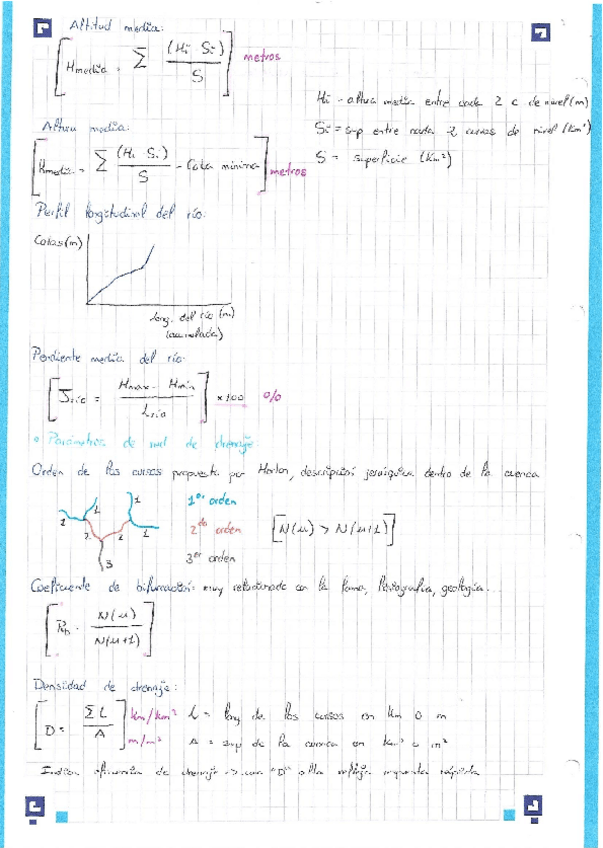 Altitud media:
[Hmedia = Σ (Hi Si) / S] metros
Hi - altura media entre cada 2 c de nivel (m)
Altura media:
Si = sup entre cada 2 curvas de nivel (Km²)
[Hmedia = Σ (Hi Si) / S - Cota mínima] metros
S = superficie (Km²)
Perfil longitudinal del río:
Cotas (m)
long. del río (m)
(acumulada)
Pendiente media del río:
[Jrío = Hmax - Hmin / Lrío] x100 %
• Parámetros de red de drenaje:
Orden de los cursos propuesta por Horton, descripción jerárquica dentro de la cuenca
1 1 1 1er orden
1 2 2 1 2do orden [N(u) > N(u+1)]
3 3er orden
Coeficiente de bifurcación: muy relacionado con la forma, geología...
[Rb = N(u) / N(u+1)]
Densidad de drenaje:
[D = ΣL / A] km/km² L = long de los cursos en Km o m
m/m² A = sup de la cuenca en Km² o m²
Indica eficiencia de drenaje -> con "D" alta refleja respuesta rápida